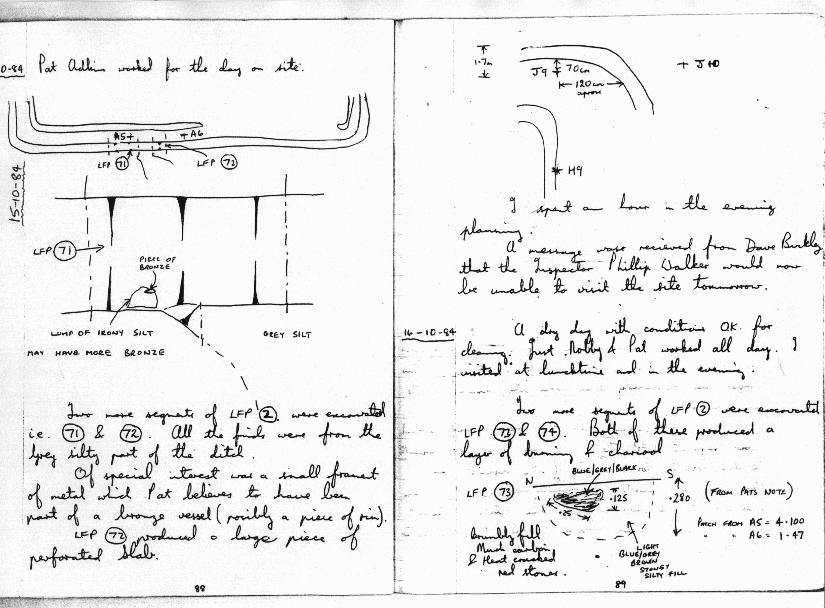 0-84 Pat Adkins worked for the day on site.
A5+ +A6
LFP 71 LFP 72
15-10-84
LFP 71
PIECE OF
BRONZE
LUMP OF IRONY SILT
MAY HAVE MORE BRONZE
GREY SILT
Two more segments of LFP 2 were excavated
i.e. 71 & 72. All the finds were from the
grey silty part of the ditch.
Of special interest was a small frament
of metal which Pat believes to have been
part of a bronze vessel (posibly a piece of rim).
LFP 72 produced a large piece of
perforated slab.
88
1.7m
J9 70cm
120cm
aprox
+ J10
H9
I spent an hour in the evening
planning.
A message was recieved from Dave Buckley
that the Inspector Phillip Walker would now
be unable to visit the site tommorow.
16-10-84
A dry day with conditions OK for
cleaning. Just Nobby & Pat worked all day. I
visited at lunchtime and in the evening.
Two more segments of LFP 2 were excavated
LFP 73 & 74. Both of these produced a
layer of burning & charcoal
BLUE/GREY/BLACK
N S
LFP 73
.25
.125
.280
(FROM PATS NOTE)
PATCH FROM A5 = 4.100
" " A6 = 1.47
Crumbly fill
Much carbon
& Heat cracked
red stones.
LIGHT
BLUE/GREY
BROWN
STONEY
SILTY FILL
89